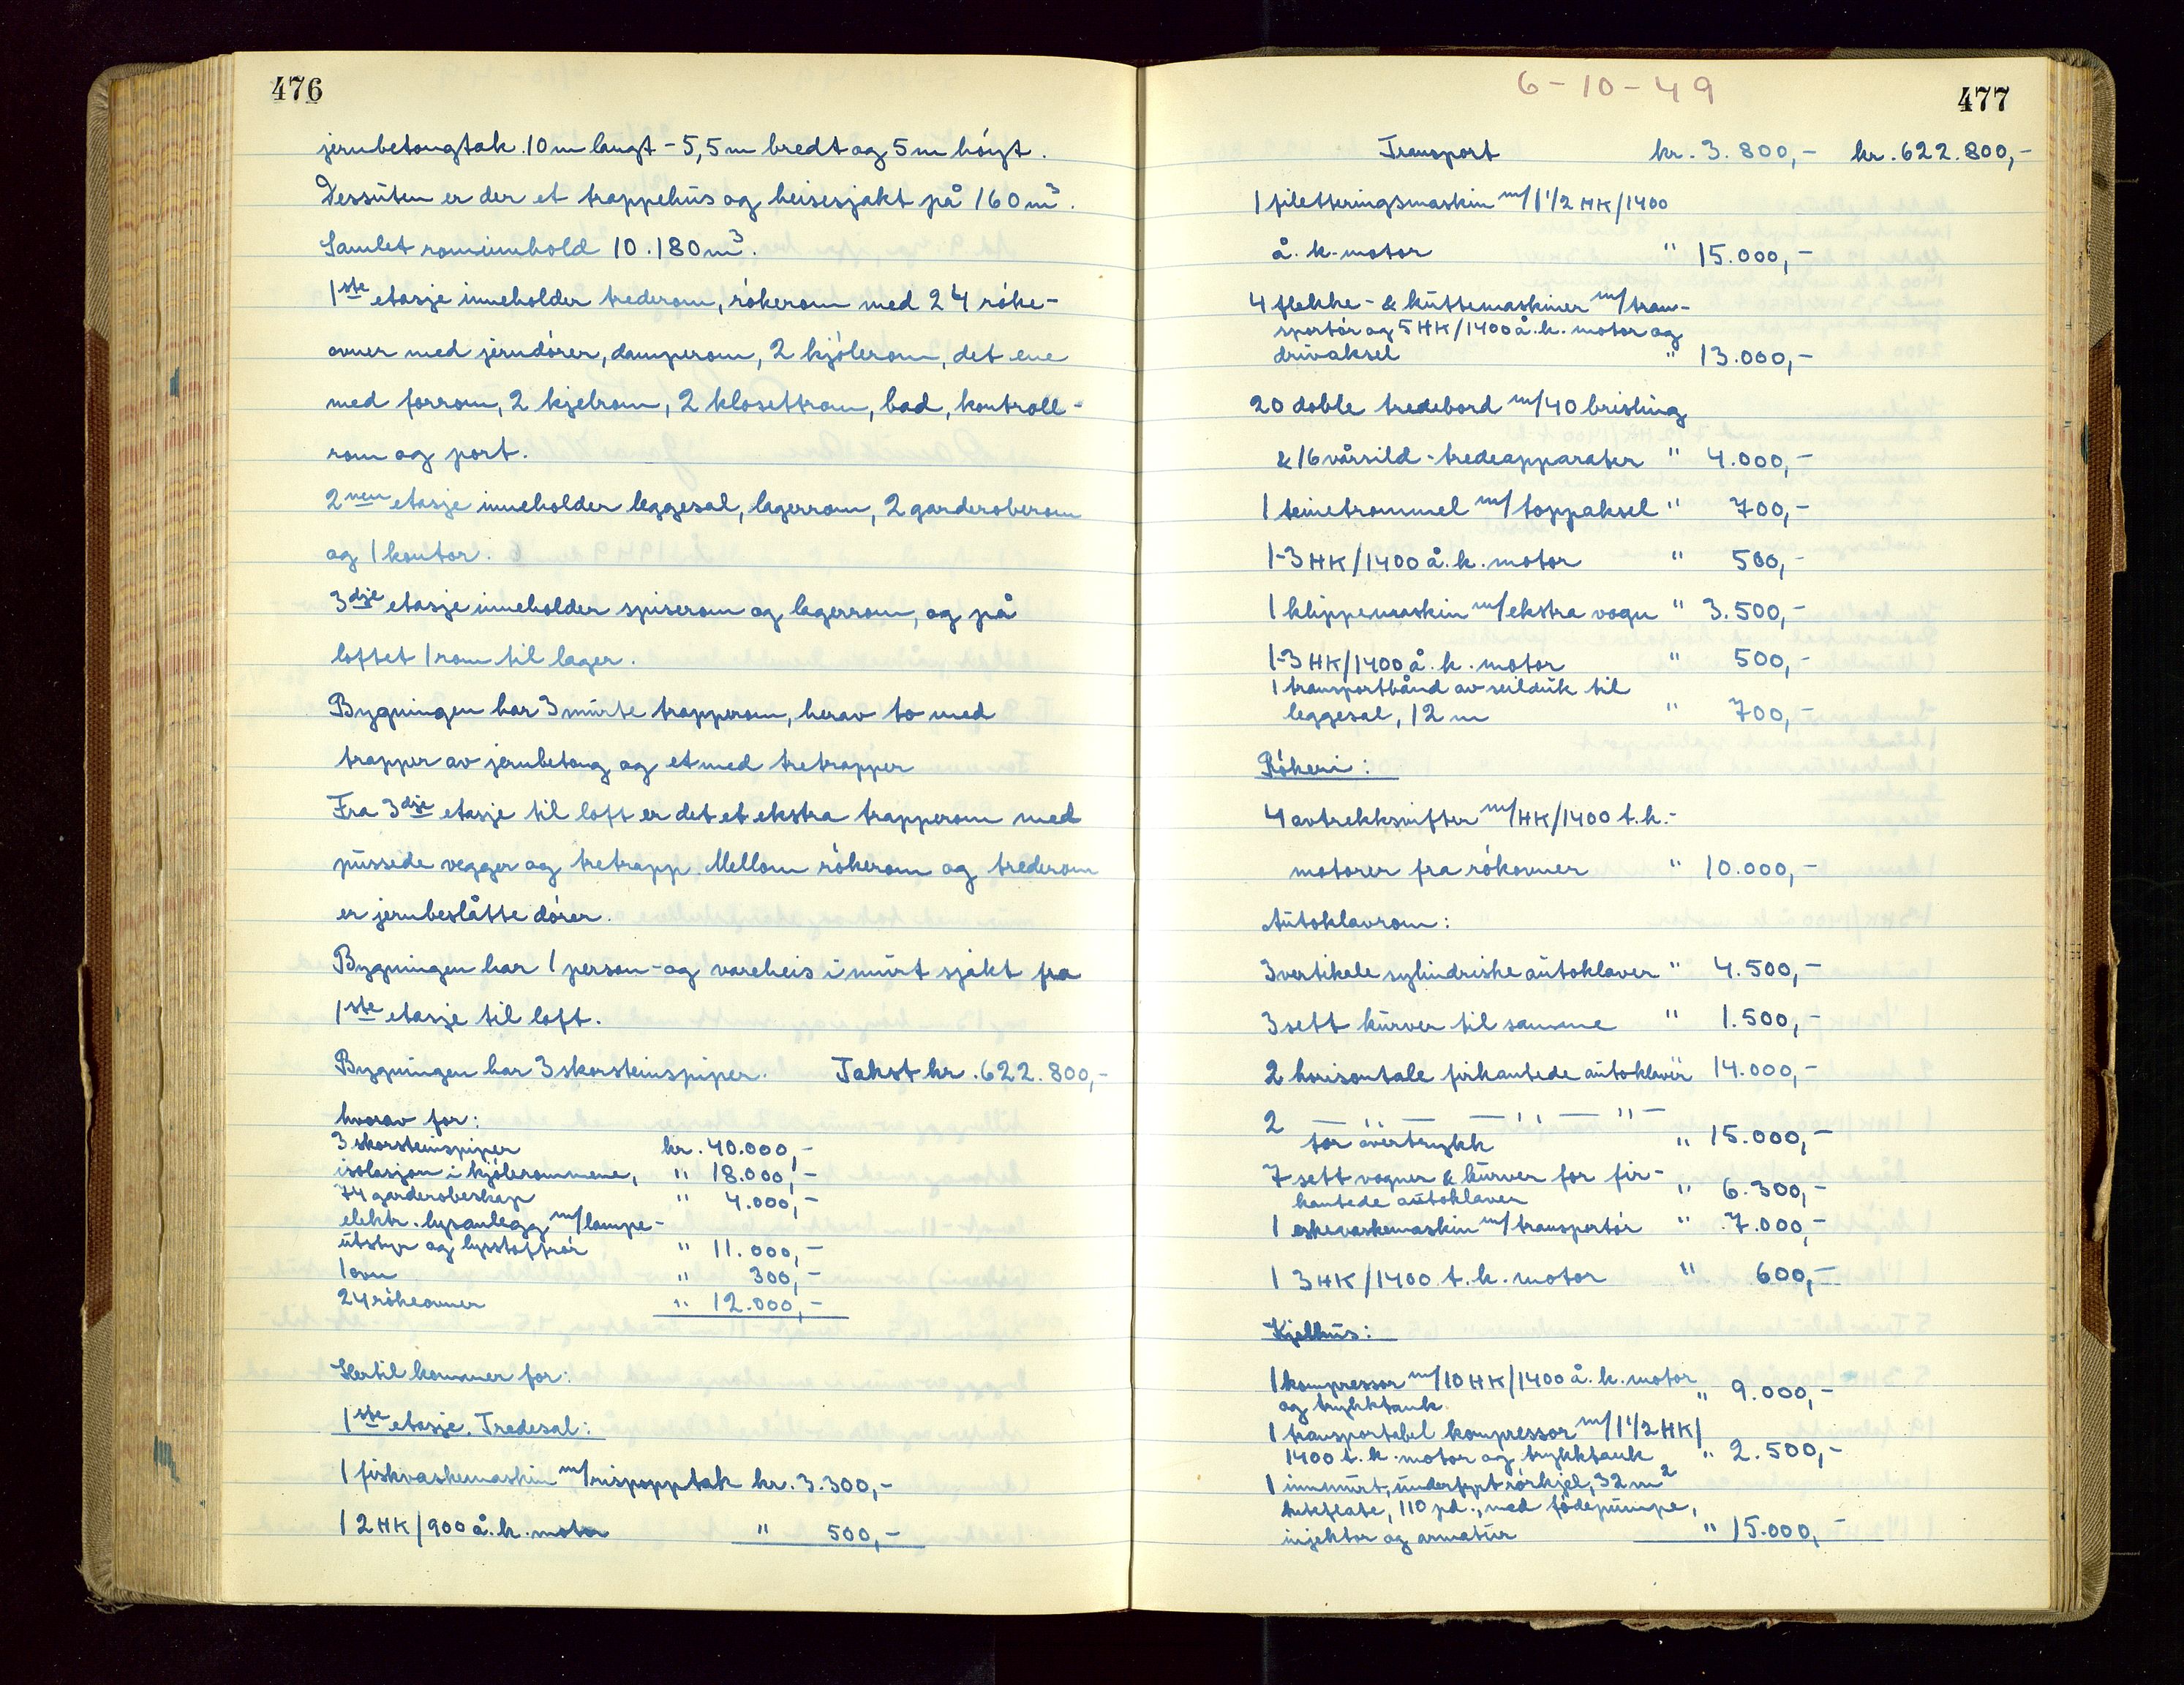 476
jernbetongtak. 10 m langt - 5,5 m bredt og 5 m höyt.
Dessuten er der et trappehus og heisesjakt på 160 m³.
Samlet rominnhold 10.180 m³.
1ste etasje inneholder trederom, rökerom med 24 röke-
ovner med jerndörer, damperom, 2 kjölerom, det ene
med forrom, 2 kjelrom, 2 klosettrom, bad, kontroll-
rom og port.
2nen etasje inneholder leggesal, lagerrom, 2 garderoberom
og 1 kontor.
3dje etasje inneholder spiserom og lagerrom, og på
loftet 1 rom til lager.
Bygningen har 3 murte trapperom, herav to med
trapper av jernbetong og et med tretrapper
Fra 3dje etasje til loft er det et ekstra trapperom med
pussede vegger og tretrapp. Mellom rökerom og trederom
er jernbeslåtte dörer.
Bygningen har 1 person- og vareheis i murt sjakt fra
1ste etasje til loft.
Bygningen har 3 skorsteinspiper. Takst kr. 622.800,-
hvorav for:
3 skorsteinspiper kr. 40.000,-
isolasjon i kjölerommene, " 18.000,-
74 garderobeskap " 4.000,-
elektr. lysanlegg m/lampe-
utstyr og lysstoffrör " 11.000,-
1 ovn " 300,-
24 rökeovner " 12.000,-
Hertil kommer for:
1ste etasje. Tredesal:
1 fiskvaskemaskin m/rispopptak kr. 3.300,-
1 2 HK/900 å.k. motor " 500,-
6-10-49
477
Transport kr. 3.800,- kr. 622.800,-
1 filetteringsmaskin m/1 1/2 HK/1400
å.k. motor " 15.000,-
4 flekke- & kuttemaskiner m/tran-
sportör og 5 HK/1400 å.k. motor og
drivaksel " 13.000,-
20 doble tredebord m/40 brisling
& 16 vårsild-tredeapparater " 4.000,-
1 teinetrommel m/toppaksel " 700,-
1-3 HK/1400 å.k. motor " 500,-
1 klippemaskin m/ekstra vogn " 3.500,-
1-3 HK/1400 å.k. motor " 500,-
1 transportbånd av seilduk til
leggesal, 12 m " 700,-
Rökeri:
4 avtrekksvifter m/HK/1400 t.k.-
motorer fra rökovner " 10.000,-
Autoklavrom:
3 vertikale sylindriske autoklaver " 4.500,-
3 sett kurver til samme " 1.500,-
2 horisontale firkantede autoklaver " 14.000,-
2 — " — — " — " —
for overtrykk " 15.000,-
7 sett vogner & kurver for fir-
kantede autoklaver " 6.300,-
1 eskevaskemaskin m/transportör " 7.000,-
1 3 HK/1400 t.k. motor " 600,-
Kjelhus:
1 kompressor m/10 HK/1400 å.k. motor
og trykktank " 9.000,-
1 transportabel kompressor m/1 1/2 HK/
1400 t.k. motor og trykktank " 2.500,-
1 innmurt, underfyrt rörkjel, 32 m²
heteflate, 110 pd., med födepumpe,
injektor og armatur " 15.000,-